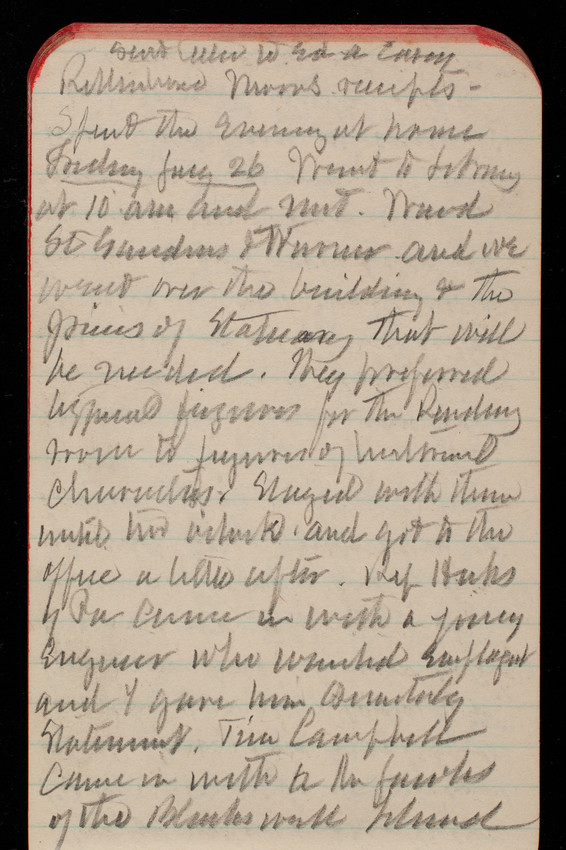 Sent letter to Ed a Casey
Rittenhouse Moors receipts -
Spent the Evening at home
Friday Jany 26 Went to Library
at 10 am and met. Ward
St Gaudens & Warner and we
went over the building & the
pieces of Statuary that will
be needed. They preferred
typical figures for the Reading
room to figures of
characters. Stayed with them
until two o'clock and got to the
office a little after. Rep Hicks
of Pa came in with a young
Engineer who wanted Employment
and I gave him Quarterly
Statement. Tim Campbell
came in with to the
of the Blackwell Island